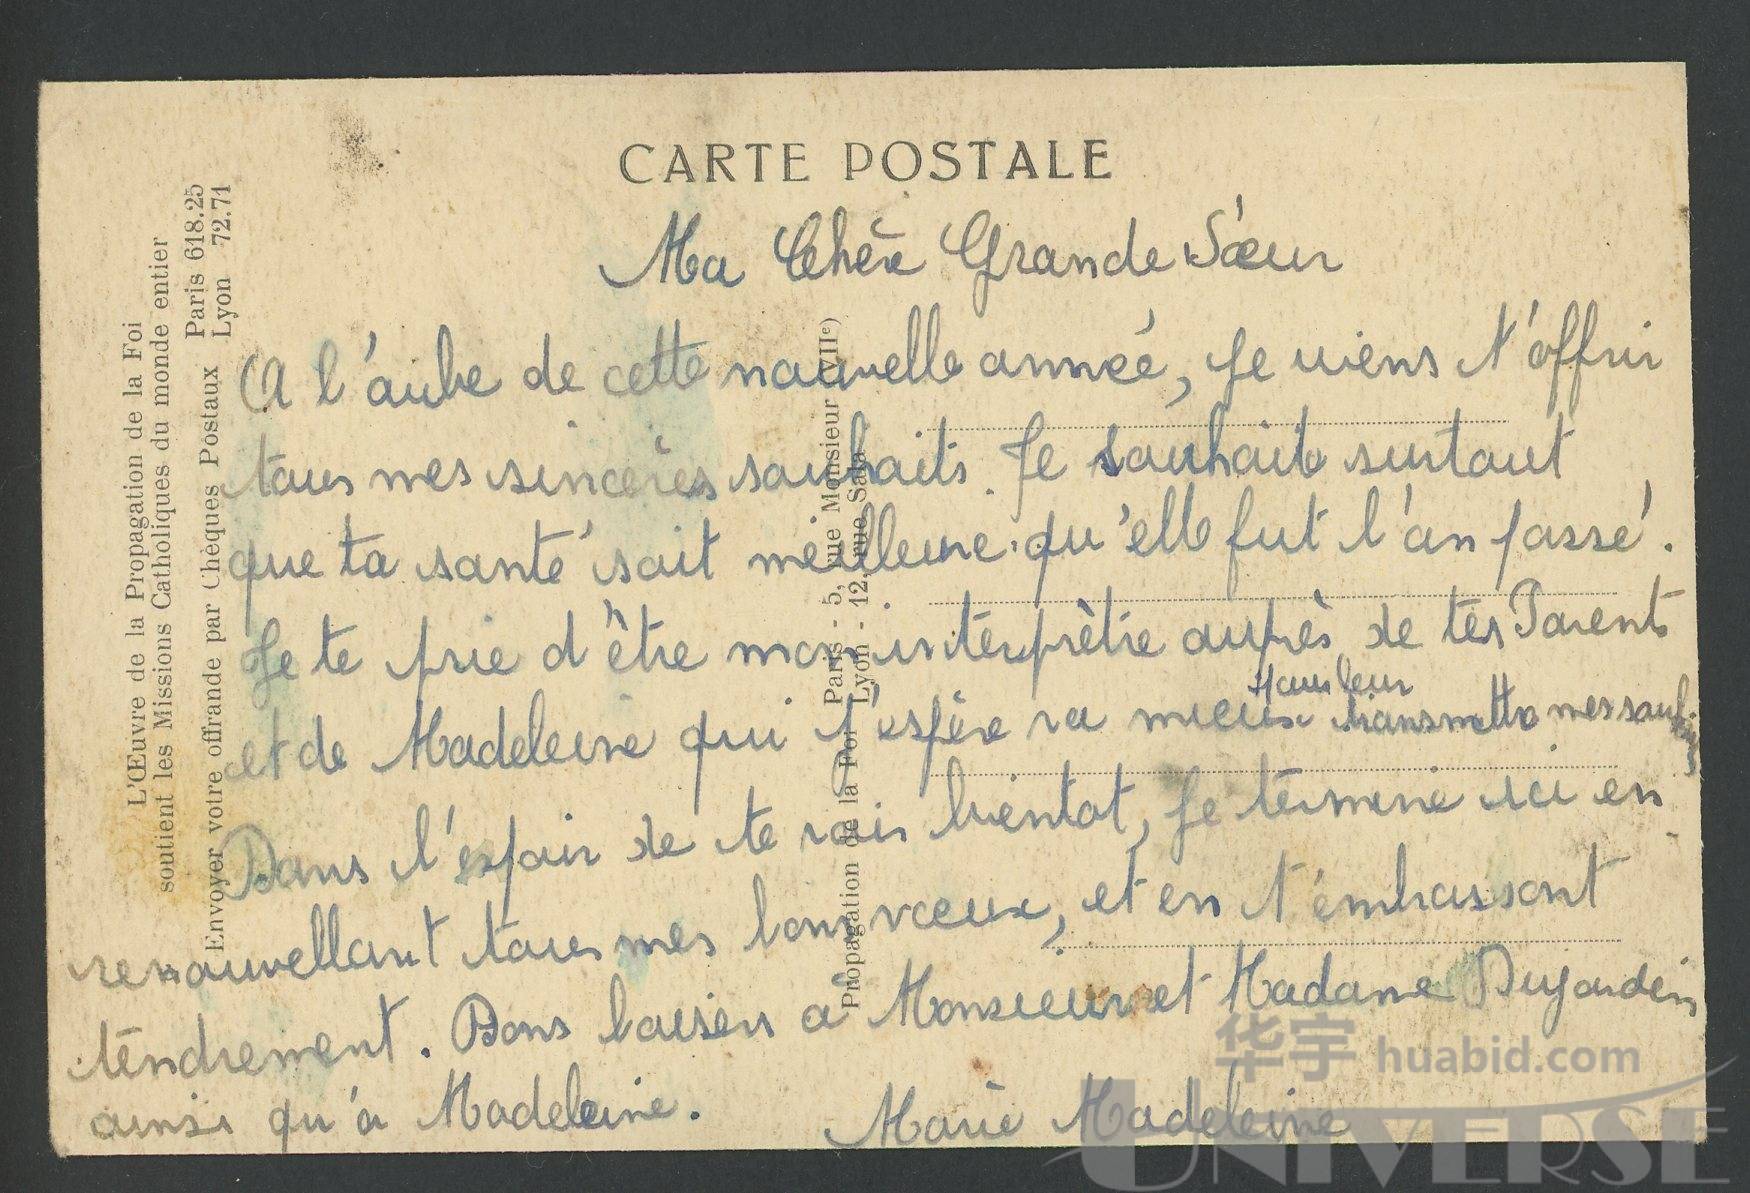 CARTE POSTALE
Ma Chère Grande Sœur
A l'aube de cette nouvelle année, Je viens t'offrir
tous mes sincères souhaits. Je souhaite surtout
que ta santé soit meilleure qu'elle fut l'an passé.
Je te prie d'être mon interprètre auprès de tes Parents
et de Madeleine qui j'espère va mieux transmettre mes
pour leur
Dans l'espoir de te voir bientot, je termine ici en
renouvellant tous mes bons vœux, et en t'embrassant
tendrement. Bons baisers à Monsieur et Madame Dujardin
ainsi qu'à Madeleine.
Marie Madeleine
L'Œuvre de la Propagation de la Foi
soutient les Missions Catholiques du monde entier
Envoyer votre offrande par Chèques Postaux Paris 618.25
Lyon 72.71
Propagation de la Foi Paris - 5, rue Monsieur (VIIe)
Lyon - 12, rue Sala
华宇 huabid.com
UNIVERSE